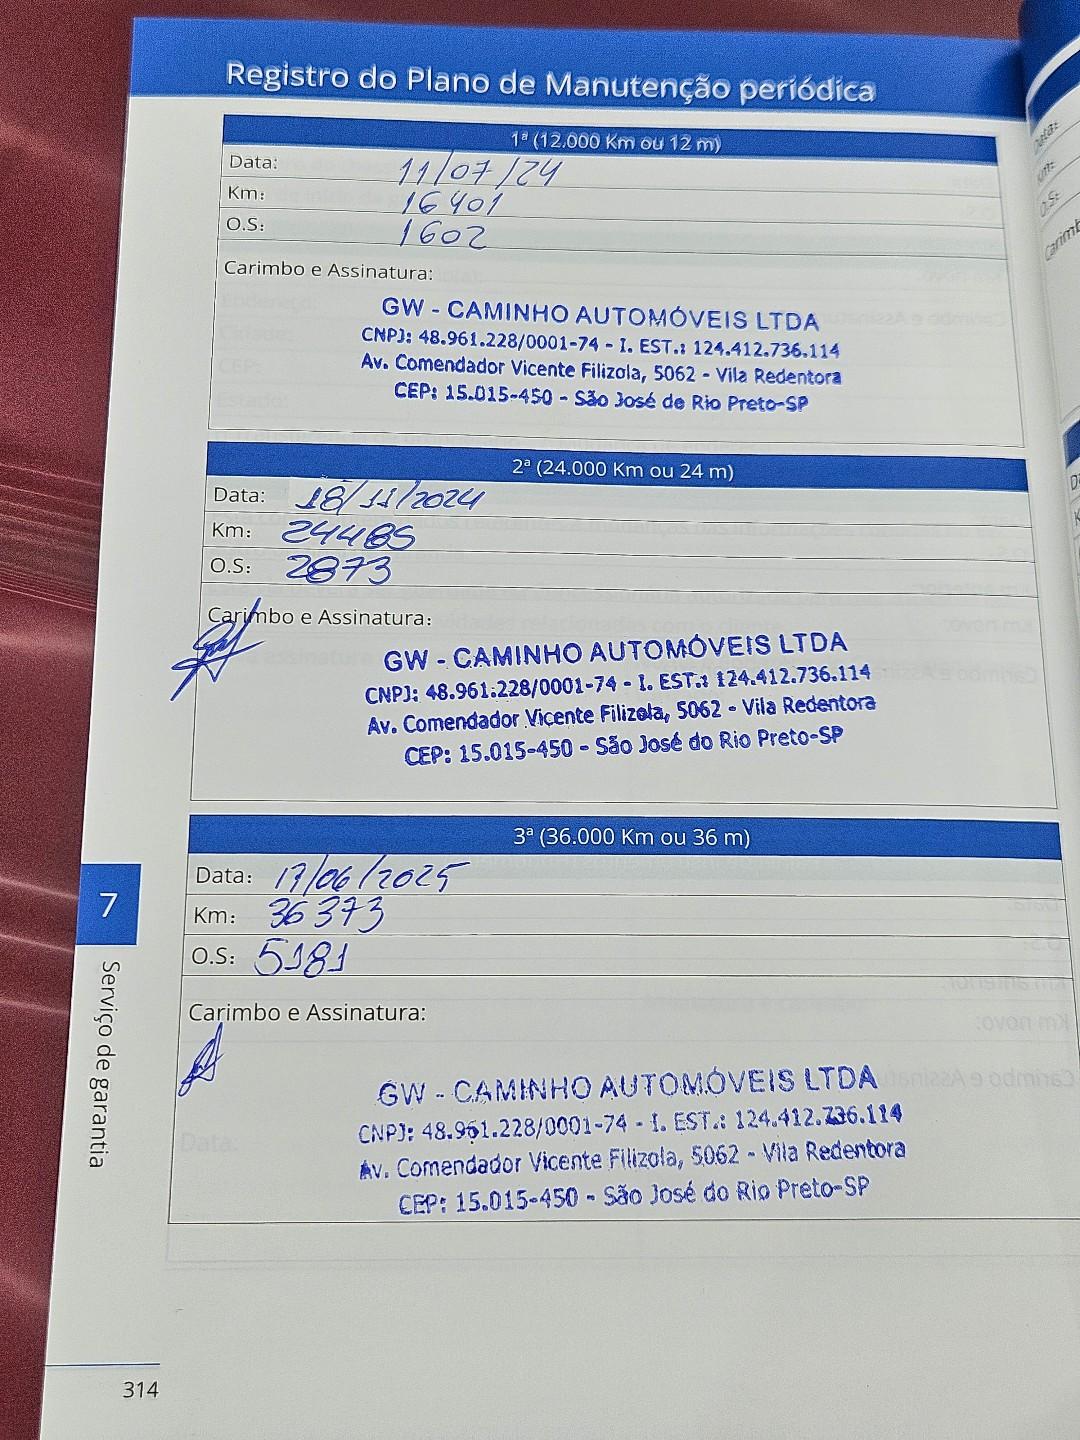 Registro do Plano de Manutenção periódica
1ª (12.000 Km ou 12 m)
Data: 11/07/24
Km: 16401
O.S: 1602
Carimbo e Assinatura:
GW - CAMINHO AUTOMÓVEIS LTDA
CNPJ: 48.961.228/0001-74 - I. EST.: 124.412.736.114
Av. Comendador Vicente Filizola, 5062 - Vila Redentora
CEP: 15.015-450 - São José do Rio Preto-SP
2ª (24.000 Km ou 24 m)
Data: 18/11/2024
Km: 24485
O.S: 2873
Carimbo e Assinatura:
GW - CAMINHO AUTOMÓVEIS LTDA
CNPJ: 48.961.228/0001-74 - I. EST.: 124.412.736.114
Av. Comendador Vicente Filizola, 5062 - Vila Redentora
CEP: 15.015-450 - São José do Rio Preto-SP
3ª (36.000 Km ou 36 m)
Data: 17/06/2025
Km: 36373
O.S: 5181
Carimbo e Assinatura:
GW - CAMINHO AUTOMÓVEIS LTDA
CNPJ: 48.961.228/0001-74 - I. EST.: 124.412.736.114
Av. Comendador Vicente Filizola, 5062 - Vila Redentora
CEP: 15.015-450 - São José do Rio Preto-SP
7
Serviço de garantia
314